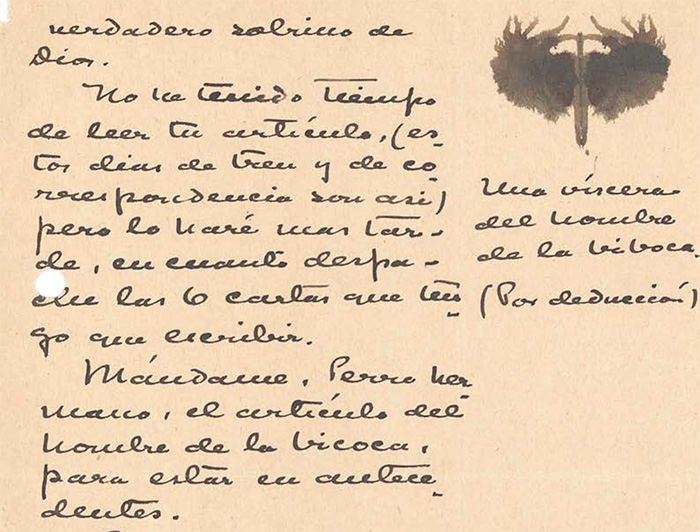 verdadero sobrino de
Dios.
No he tenido tiempo
de leer tu artículo, (es-
tos dias de tren y de co-
rrespondencia son asi)
pero lo haré mas tar-
de, en cuanto despa-
che las 6 cartas que ten-
go que escribir.
Mándame, Perro her
mano, el artículo del
hombre de la bicoca,
para estar en antece-
dentes.
Una víscera
del hombre
de la bicoca.
(Por deducción)